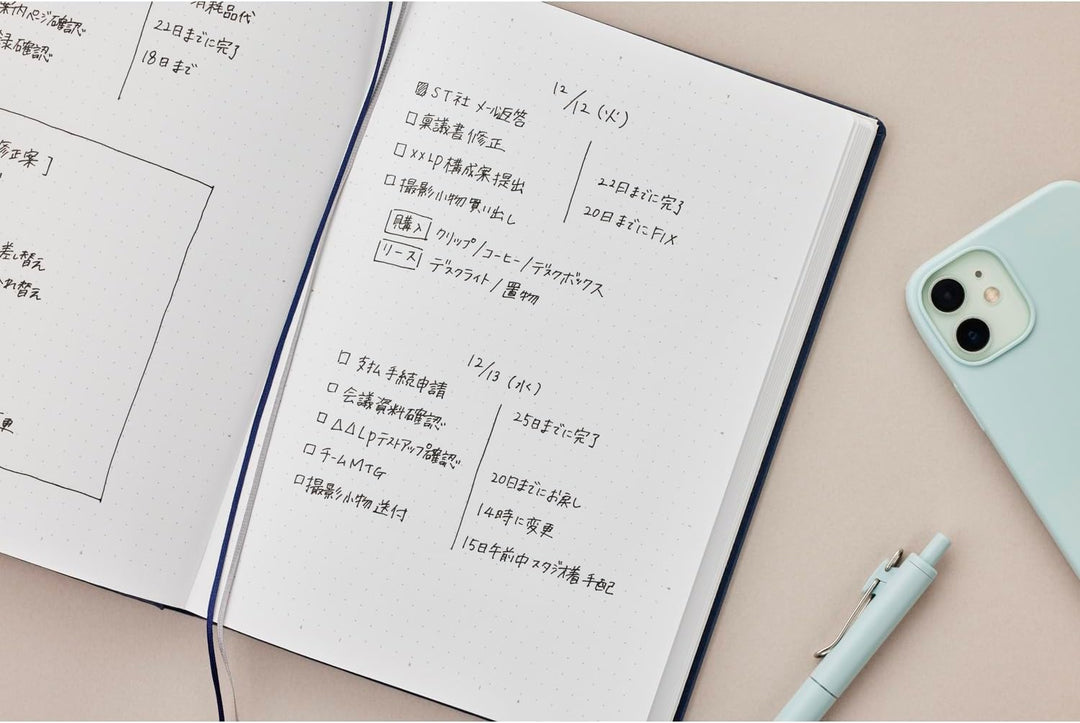 案内ページ確認
録確認
消耗品代
22日までに完了
18日まで
修正案]
差し替え
れ替え
変更
12/12(火)
☒ST社 メール返答
□稟議書修正
□××LP構成案提出
□撮影小物買い出し
購入 クリップ/コーヒー/デスクボックス
リース デスクライト/置物
22日までに完了
20日までにFIX
12/13(水)
□ 支払手続申請
□ 会議資料確認
□ △△LPテストアップ確認
□ チームMTG
□撮影小物送付
25日までに完了
20日までにお戻し
14時に変更
15日午前中スタジオ着手配